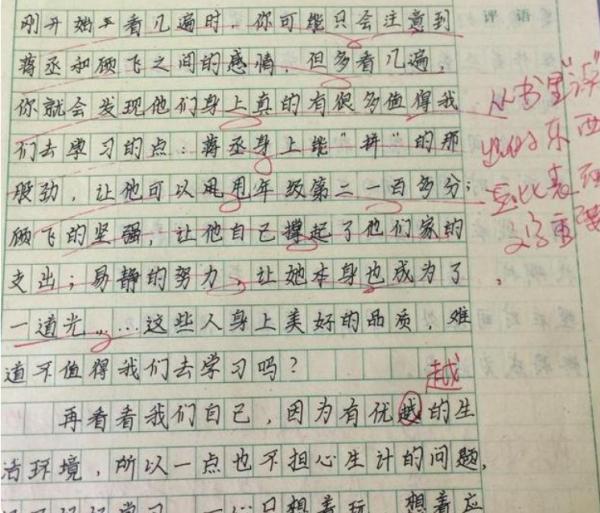 刚开始去看几遍时,你可能只会注意到
蒋丞和顾飞之间的感情,但多看几遍,
你就会发现他们身上真的有很多值得我
们去学习的点:蒋丞身上能"拼"的那
股劲,让他可以甩甩年级第二一百多分;
顾飞的坚强,让他自己撑起了他们家的
支出;易静的努力,让她本身也成为了
一道光……这些人身上美好的品质,难
道不值得我们去学习吗?
再看看我们自己,因为有优越的生
活环境,所以一点也不担心生计的问题,
想着
评语
从书里"评"
出的东西
要比表面
文字重要
越